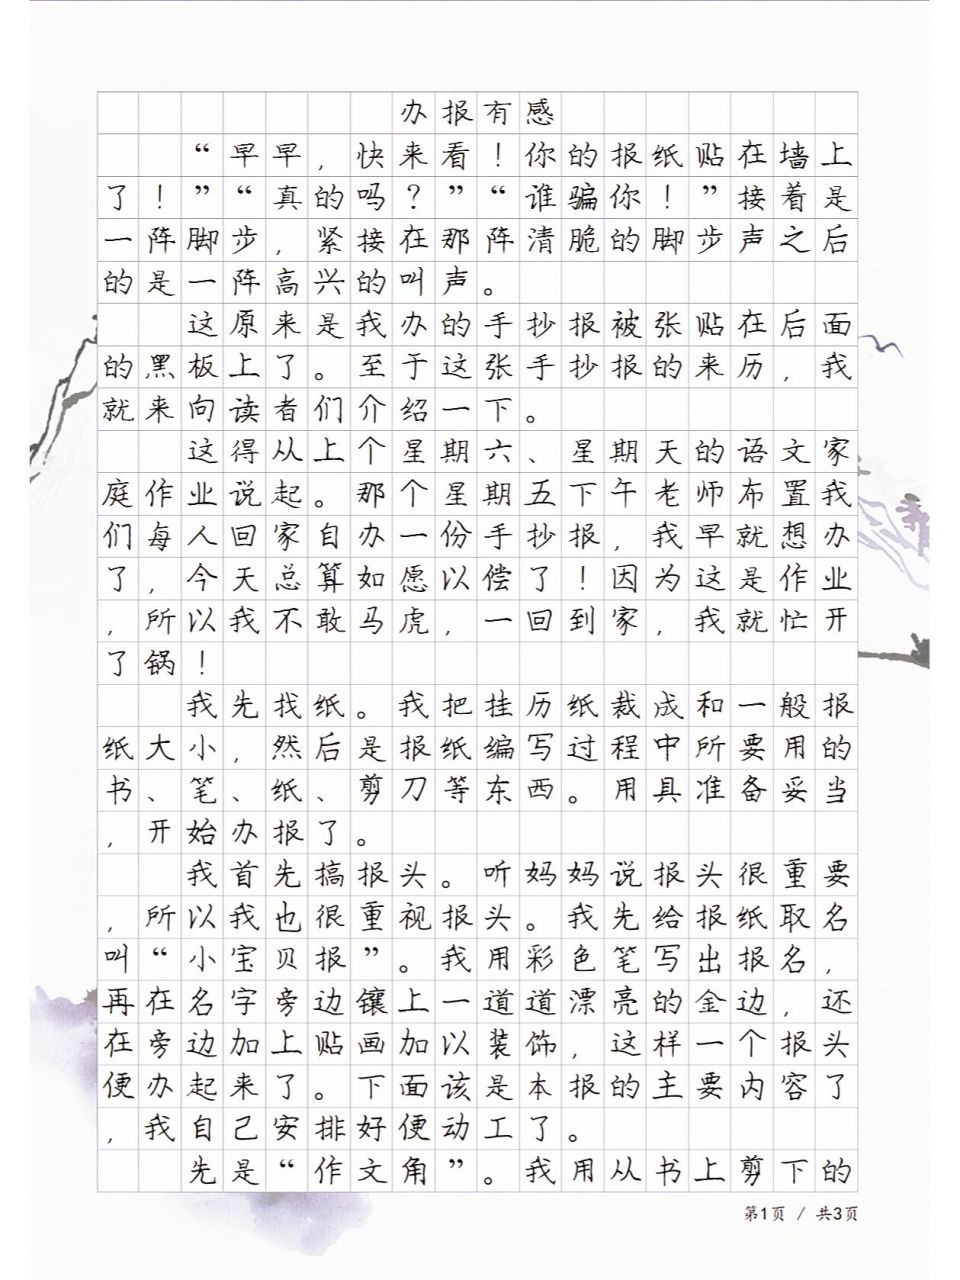 办报有感
“早早，快来看！你的报纸贴在墙上
了！”“真的吗？”“谁骗你！”接着是
一阵脚步，紧接在那阵清脆的脚步声之后
的是一阵高兴的叫声。
这原来是我办的手抄报被张贴在后面
的黑板上了。至于这张手抄报的来历，我
就来向读者们介绍一下。
这得从上个星期六、星期天的语文家
庭作业说起。那个星期五下午老师布置我
们每人回家自办一份手抄报，我早就想办
了，今天总算如愿以偿了！因为这是作业
，所以我不敢马虎，一回到家，我就忙开
了锅！
我先找纸。我把挂历纸裁成和一般报
纸大小，然后是报纸编写过程中所要用的
书、笔、纸、剪刀等东西。用具准备妥当
，开始办报了。
我首先搞报头。听妈妈说报头很重要
，所以我也很重视报头。我先给报纸取名
叫“小宝贝报”。我用彩色笔写出报名，
再在名字旁边镶上一道道漂亮的金边，还
在旁边加上贴画加以装饰，这样一个报头
便办起来了。下面该是本报的主要内容了
，我自己安排好便动工了。
先是“作文角”。我用从书上剪下的
第1页 / 共3页